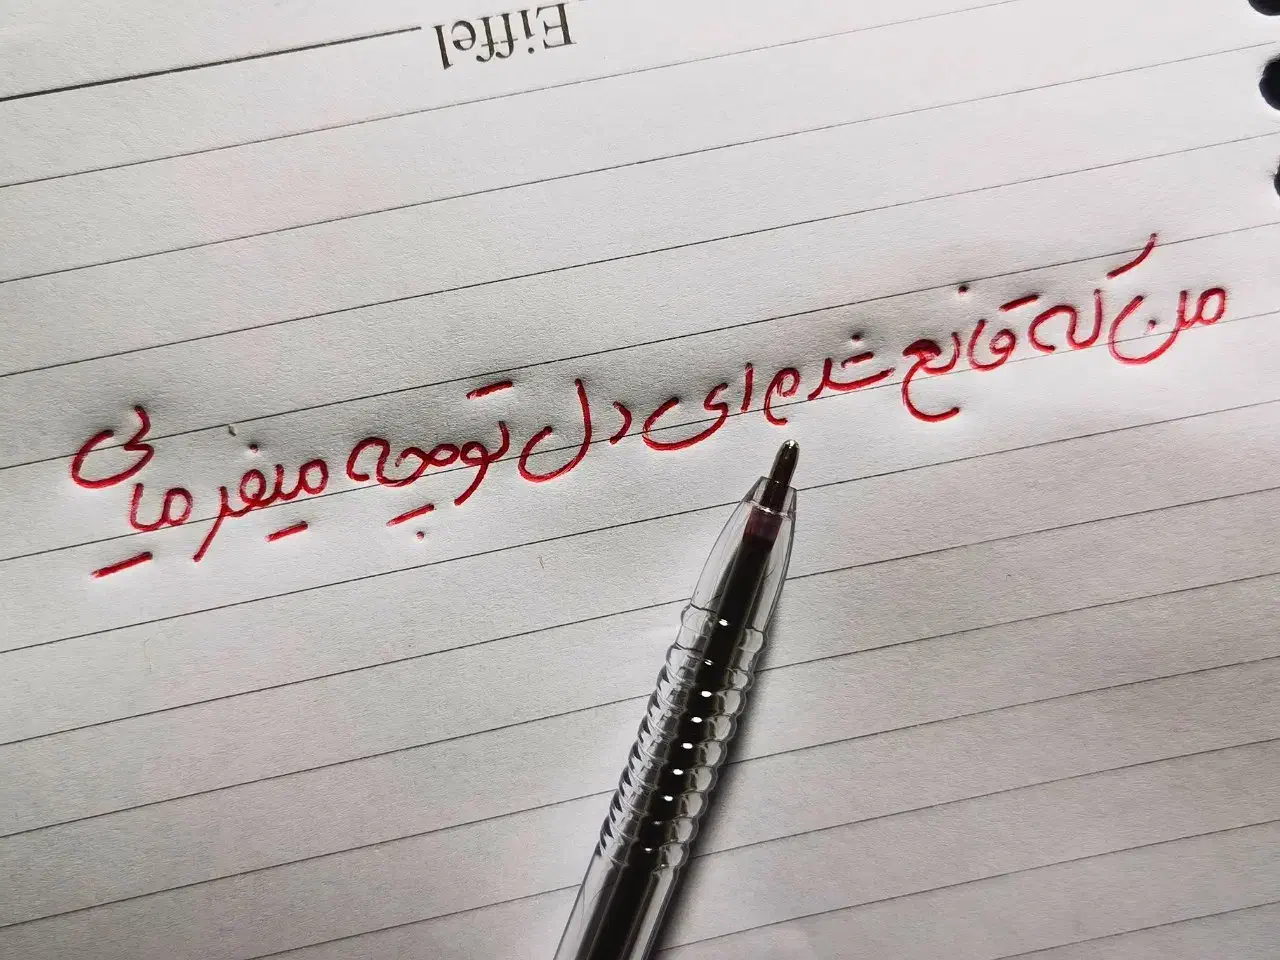 Eiffel
من که قانع شدم ای دل تو چه میفرمایی